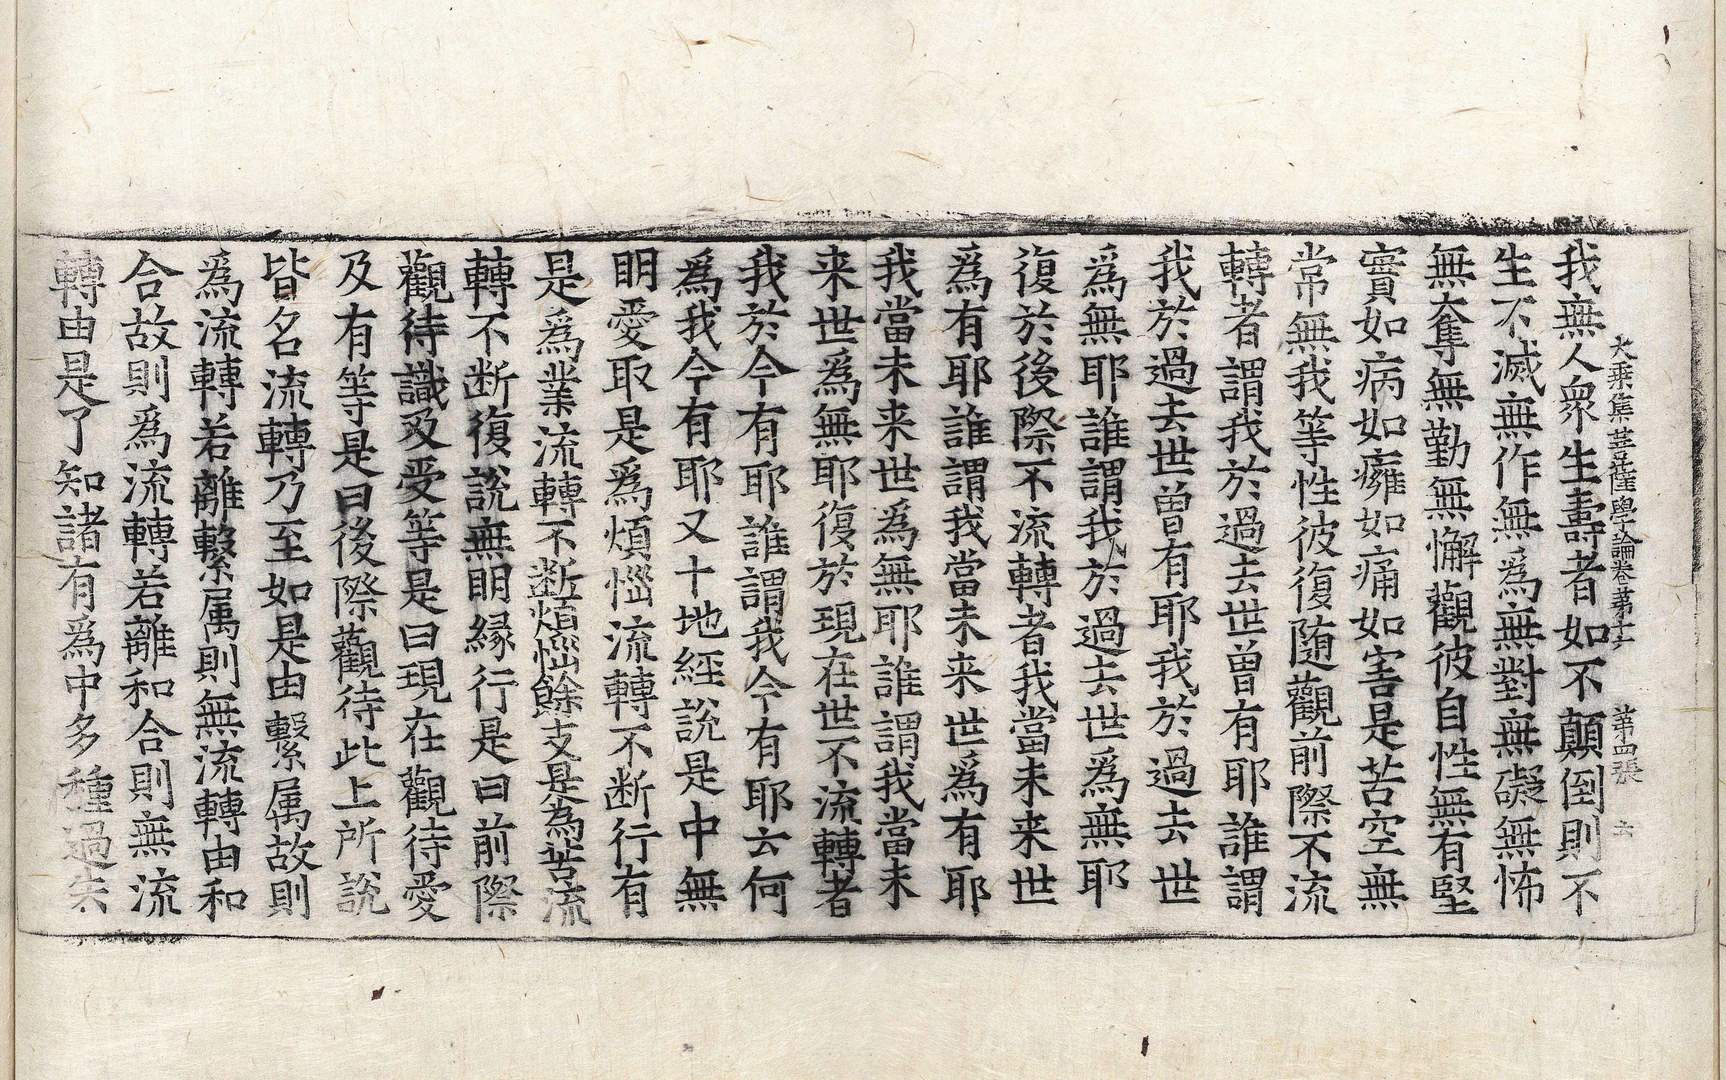 大乘集菩薩學論卷第十六　第四張　六
我無人衆生壽者如不顛倒則不
生不滅無作無爲無對無礙無怖
無奪無勤無懈觀彼自性無有堅
實如病如癰如痛如害是苦空無
常無我等性彼復随觀前際不流
轉者謂我於過去世曾有耶誰謂
我於過去世曾有耶我於過去世
爲無耶誰謂我於過去世爲無耶
復於後際不流轉者我當未来世
爲有耶誰謂我當未来世爲有耶
我當未来世爲無耶誰謂我當未
来世爲無耶復於現在世不流轉者
我於今有耶誰謂我今有耶云何
爲我今有耶又十地經説是中無
明愛取是爲煩惱流轉不断行有
是爲業流轉不断煩惱餘支是為苦流
轉不断復説無明縁行是曰前際
觀待識及受等是曰現在觀待愛
及有等是曰後際觀待此上所説
皆名流轉乃至如是由繫属故則
爲流轉若離繫属則無流轉由和
合故則爲流轉若離和合則無流
轉由是了知諸有爲中多種過失